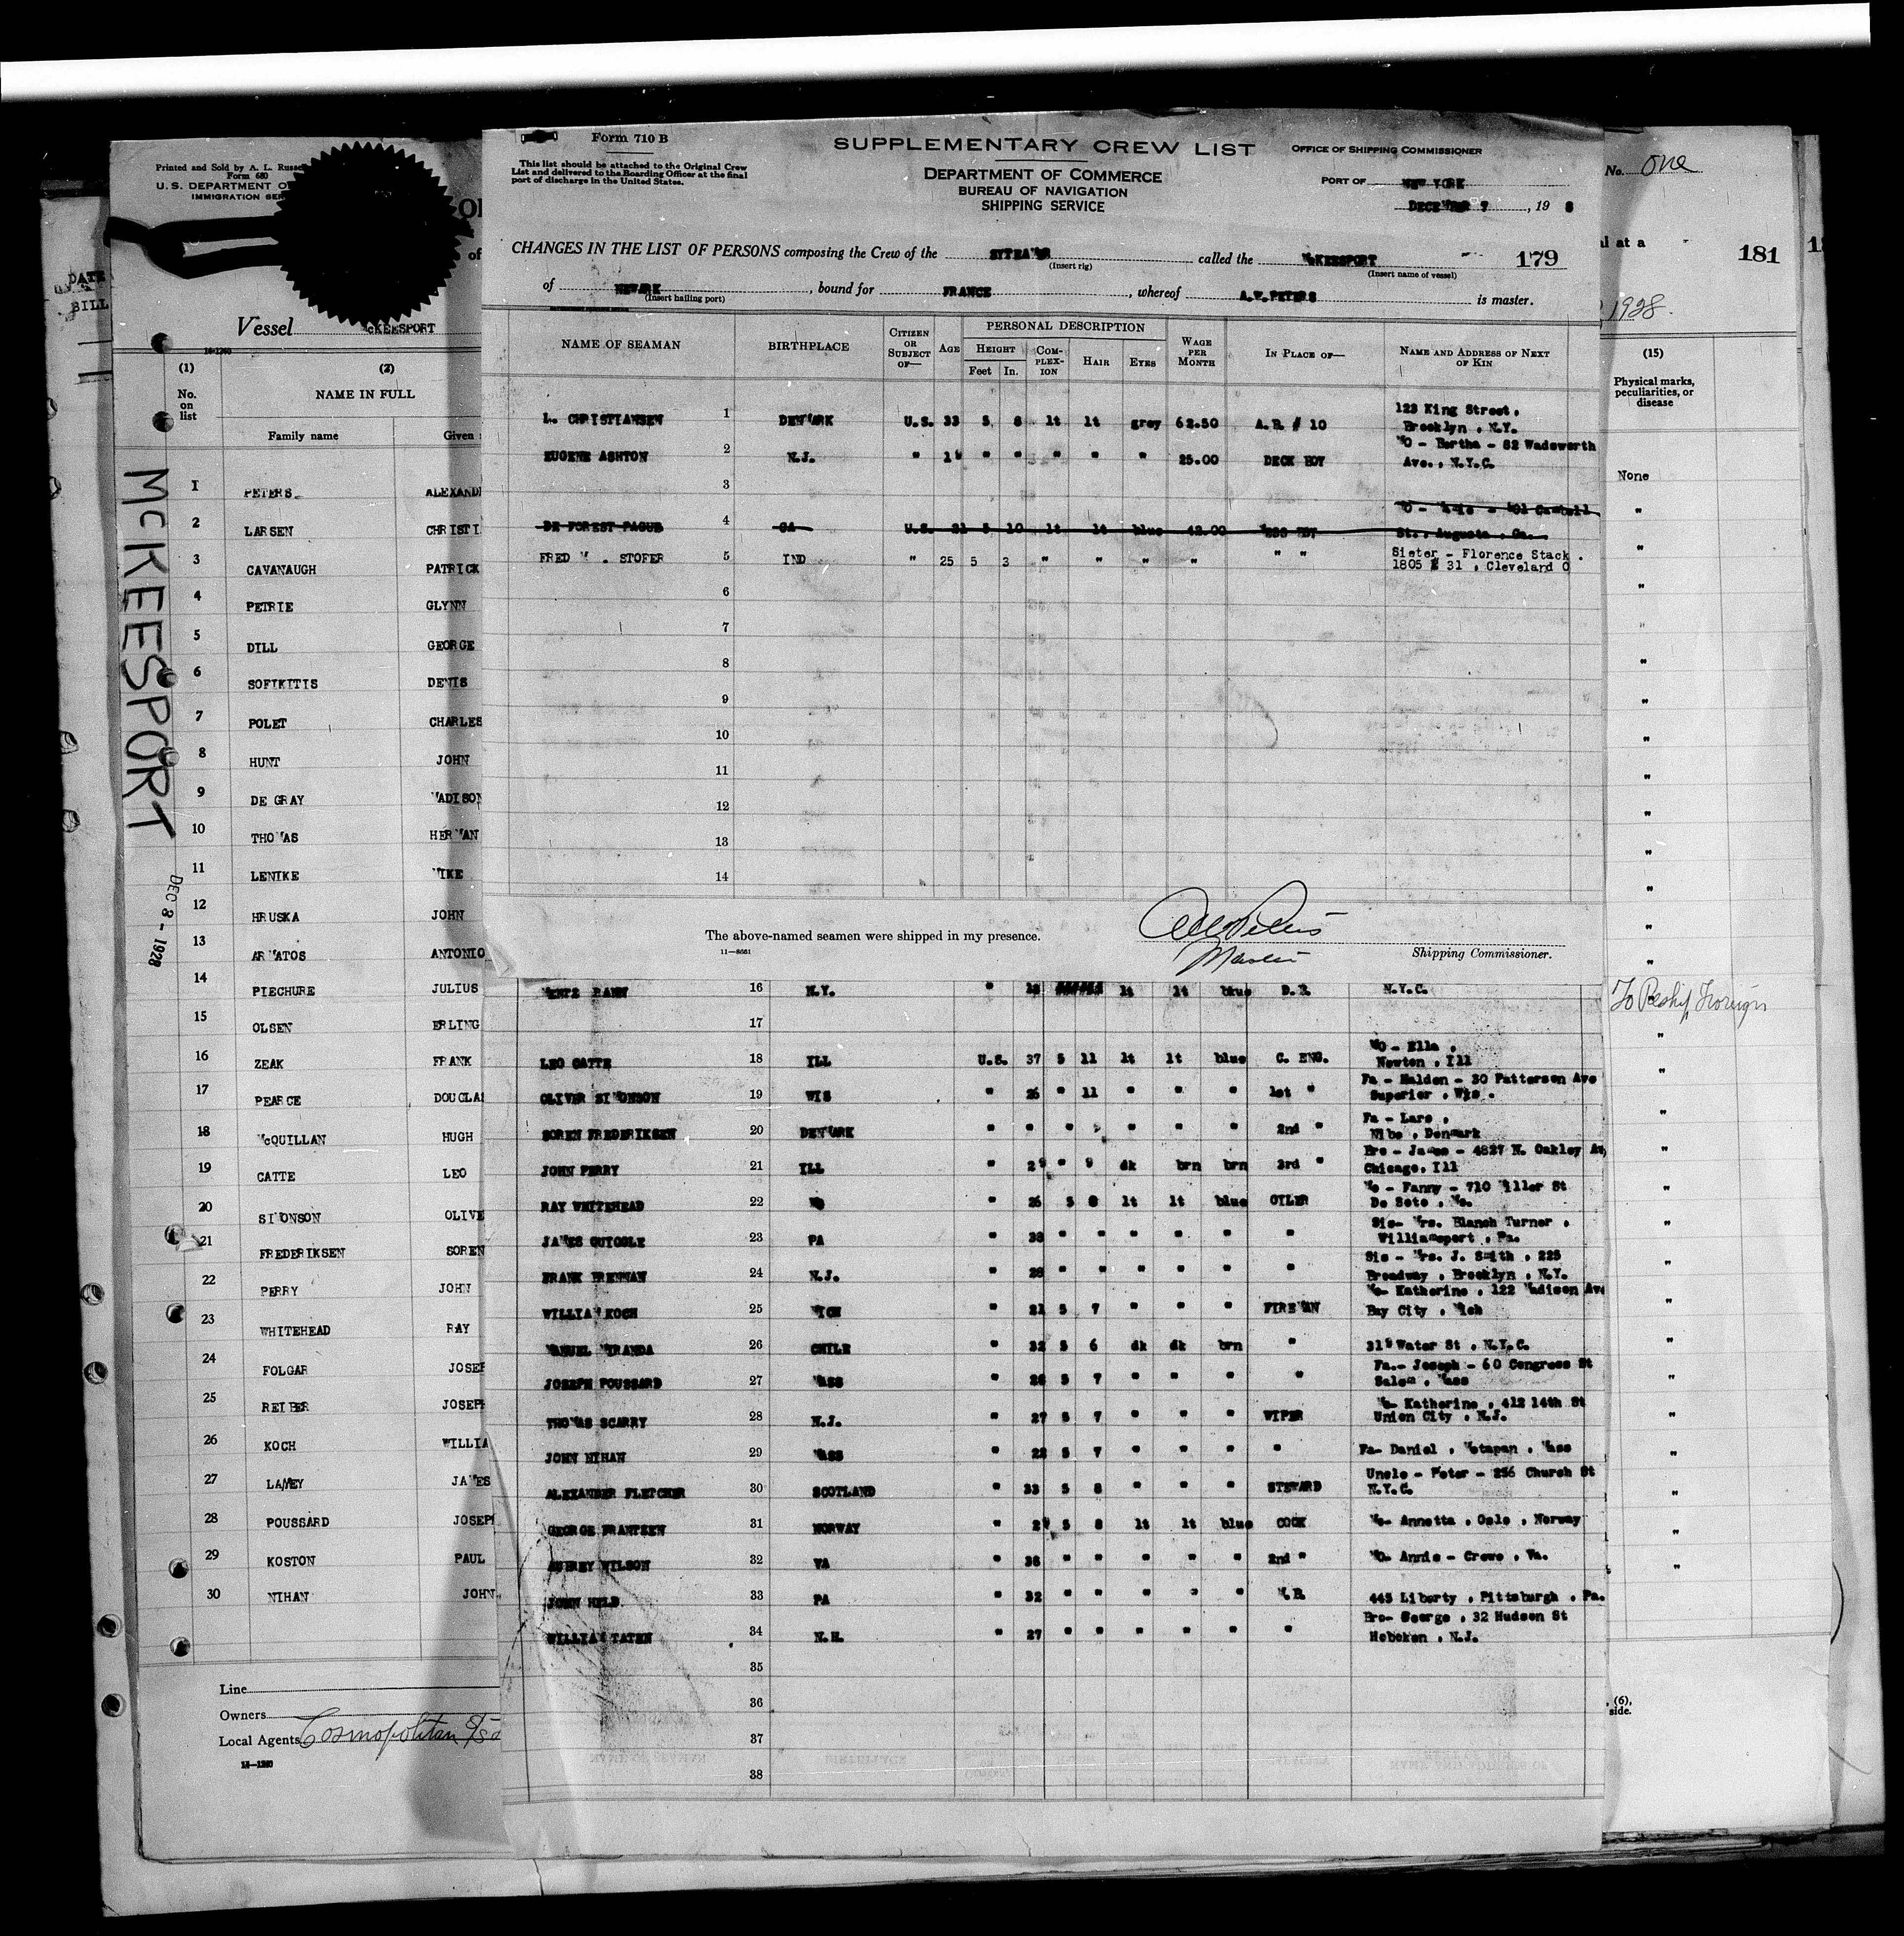 Printed and Sold by A. L. Russe
Form 680
U. S. DEPARTMENT O
IMMIGRATION SER
of
DATE
BILL
Vessel McKEESPORT
16-1240
(1) (2)
No. on list
NAME IN FULL
Family name Given
McKEESPORT
DEC 8 - 1928
1 PETERS ALEXAND
2 LARSEN CHRISTI
3 CAVANAUGH PATRICK
4 PETRIE GLYNN
5 DILL GEORGE
6 SOFIKITIS DENIS
7 POLET CHARLES
8 HUNT JOHN
9 DE GRAY MADISON
10 THOMAS HERMAN
11 LENIKE MIKE
12 HRUSKA JOHN
13 ARMATOS ANTONIO
14 PIECHURE JULIUS
15 OLSEN ERLING
16 ZEAK FRANK
17 PEARCE DOUGLA
18 McQUILLAN HUGH
19 CATTE LEO
20 SIMONSON OLIVE
21 FREDERIKSEN SOREN
22 PERRY JOHN
23 WHITEHEAD RAY
24 FOLGAR JOSEP
25 REIBER JOSEPH
26 KOCH WILLIA
27 LAMEY JAMES
28 POUSSARD JOSEPH
29 KOSTON PAUL
30 NIHAN JOHN
Line
Owners
Local Agents Cosmopolitan S/S
14-1240
Form 710 B
This list should be attached to the Original Crew
List and delivered to the Boarding Officer at the final
port of discharge in the United States.
SUPPLEMENTARY CREW LIST
DEPARTMENT OF COMMERCE
BUREAU OF NAVIGATION
SHIPPING SERVICE
OFFICE OF SHIPPING COMMISSIONER
PORT OF NEW YORK
DECEMBER 7, 19 8
CHANGES IN THE LIST OF PERSONS composing the Crew of the STEAMER called the McKEESPORT 179
(Insert rig) (Insert name of vessel)
of NEWARK, bound for FRANCE, whereof A.W.PETERS is master.
(Insert hailing port)
NAME OF SEAMAN BIRTHPLACE CITIZEN OR SUBJECT OF— AGE PERSONAL DESCRIPTION WAGE PER MONTH IN PLACE OF— NAME AND ADDRESS OF NEXT OF KIN
HEIGHT COMPLEXION HAIR EYES
Feet In.
123 King Street,
L. CHRISTIANSEN 1 DENMARK U.S. 33 5 8 lt lt grey 62.50 A.B. # 10 Brooklyn, N.Y.
MO - Bertha - 82 Wadsworth
EUGENE ASHTON 2 N.J. " " " " " " 25.00 DECK BOY Ave., N.Y.C.
3
DE FOREST PAGUE 4 GA U.S. 21 5 10 lt lt blue 42.00 MESS BOY St., Augusta, Ga.
Sister - Florence Stack.
FRED M. STOFER 5 IND " 25 5 3 " " " " " " 1805 E 31, Cleveland O
6
7
8
9
10
11
12
13
14
The above-named seamen were shipped in my presence.
11-8661
Master
Shipping Commissioner.
16 N.Y. " lt lt blue N.Y.C.
17
MO - Ella,
LEO CATTE 18 ILL U.S. 37 5 11 lt lt blue C. ENG. Newton, Ill
Fa - Halden - 30 Patterson Ave
OLIVER SIMONSON 19 WIS " 26 " 11 " " " 1st " Superior, Wis.
Fa - Lars,
SOREN FREDERIKSEN 20 DENMARK " " " " " " 2nd " Nibe, Denmark
Bro - James - 4827 N. Oakley Av
JOHN PERRY 21 ILL " " 9 dk brn brn 3rd " Chicago, Ill
Mo - Fanny - 710 Miller St
RAY WHITEHEAD 22 MO " 26 5 8 lt lt blue OILER De Soto, Mo.
Sis- Mrs. Blanch Turner,
JAMES QUIGGLE 23 PA " 38 " " " " " " Williamsport, Pa.
Sis - Mrs. J. Smith, 225
FRANK BRENNAN 24 N.J. " 28 " " " " " " Broadway, Brooklyn, N.Y.
Mo- Katherine, 122 Madison Ave
WILLIAM KOCH 25 MICH " 21 5 7 " " " FIREMAN Bay City, Mich
MANUEL MIRANDA 26 CHILE " 32 5 6 dk dk brn " Water St, N.Y.C.
Fa.- Joseph - 60 Congress St
JOSEPH POUSSARD 27 MASS " 26 5 7 " " " " Salem, Mass
Mo- Katherine, 412 14th St
THOMAS SCARRY 28 N.J. " 27 5 7 " " " WIPER Union City, N.J.
JOHN NIHAN 29 MASS " 22 5 7 " " " " Fa- Daniel, Matapan, Mass
Uncle - Peter - 256 Church St
ALEXANDER FLETCHER 30 SCOTLAND " 33 5 8 " " " STEWARD N.Y.C.
GEORGE FRANTZEN 31 NORWAY " 5 8 lt lt blue COOK Mo- Annetta, Oslo, Norway
AUBREY WILSON 32 VA " 36 " " " " " 2nd " MO- Annie - Crewe, Va.
JOHN HELD 33 PA " 32 " " " " " M.B. 445 Liberty, Pittsburgh, Pa.
Bro- George, 32 Hudson St
WILLIAM TATEN 34 N.H. " 27 " " " " " " Hoboken, N.J.
35
36
37
38
No. One
al at a 181
1928.
(15)
Physical marks,
peculiarities, or
disease
None
"
To Reship Foreign
, (6),
side.